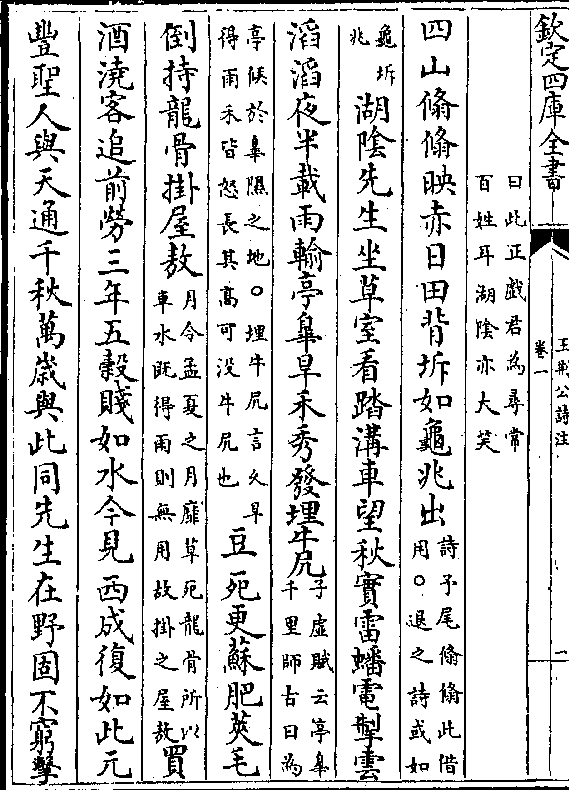 欽定四庫全書
王荆公詩注
卷一
一
曰此正戯君為尋常
百姓耳湖陰亦大笑
四山翛翛映赤日田背坼如龜兆出
詩予尾翛翛此借
用○退之詩或如
龜坼
兆
湖陰先生坐草室看踏溝車望秋實雷蟠電掣雲
滔滔夜半載雨輸亭臯旱禾秀發埋牛尻
子虛賦云亭臯
千里師古曰為
亭候於臯隰之地○埋牛尻言久旱
得雨禾皆怒長其髙可没牛尻也
豆死更蘇肥莢毛
倒持龍骨掛屋敖
月令孟夏之月靡草死龍骨所以
車水既得雨則無用故掛之屋敖
買
酒澆客追前勞三年五穀賤如水今見西成復如此元
豐聖人與天通千秋萬歳與此同先生在野固不窮擊